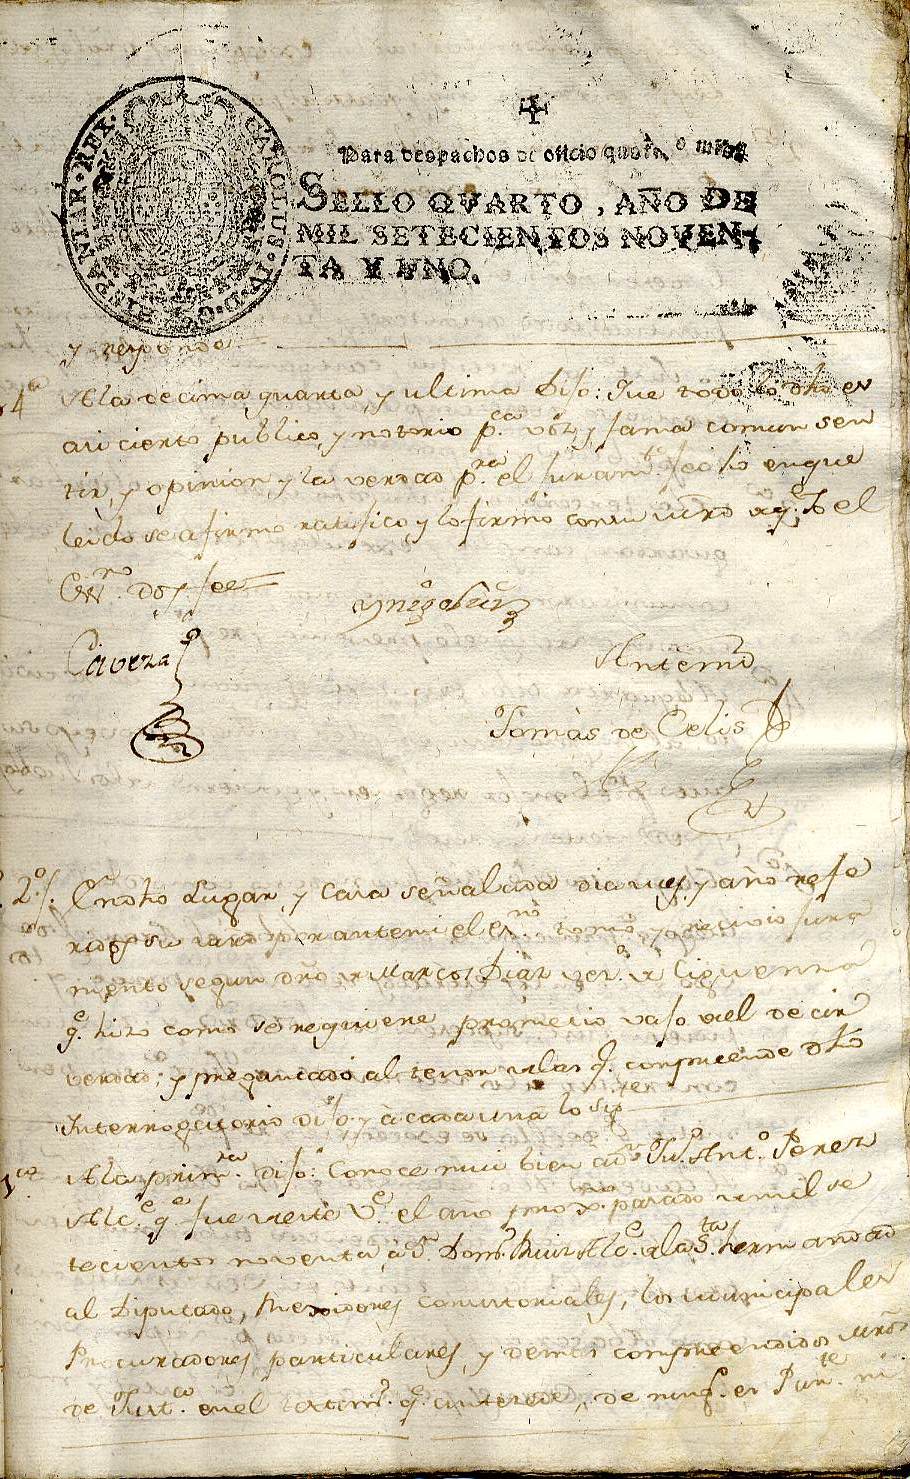 CAROLUS·IV·D·G·HISPANIAR·REX·
Para despachos de oficio quatro mrs.
SELLO QVARTO, AÑO DE
MIL SETECIENTOS NOVEN-
TA Y UNO.
y responde
14ª
Ala decima quarta y ultima Dijo: Que todo lo dho es
asi cierto publico, y notorio pca. voz, y fama comun sen
tir, y opinion, y la verdad pra. el juramto. fecho en que
leido se afirmo ratifico y lo firmo con su mrd. Yo el
Essno. Doy fee
Caveza
Antemi
Tomàs de Celis
2º/.
En dho Lugar, y Casa señalada dia mes, y año refe
ridos su mrd por antemi el esno. tomo, y recivio jura
mento segun dro de Marcos Diaz vezo. de Ciguenza
q. hizo como se requiere prometio vajo de el decir
verdad; y preguntado al tenor de las q. comprende dho
Interrogatorio dijo y à cada una lo sigte
1ra
Ala primra. Dijo: Conoce mui bien a Dn. Jun. Anto. Perez
Alce. que fue de este Ve. el año pmo. pasado de mil se
tecientos noventa, a Dn. Domo. Ruiz Alce. de la Sta. hermandad
al Diputado, Rexidores comutoriales, los municipales
Procuradores particulares, y demas comprendidos
de Justa. en el testimo. q. antecede, de ning. es Parte. ni